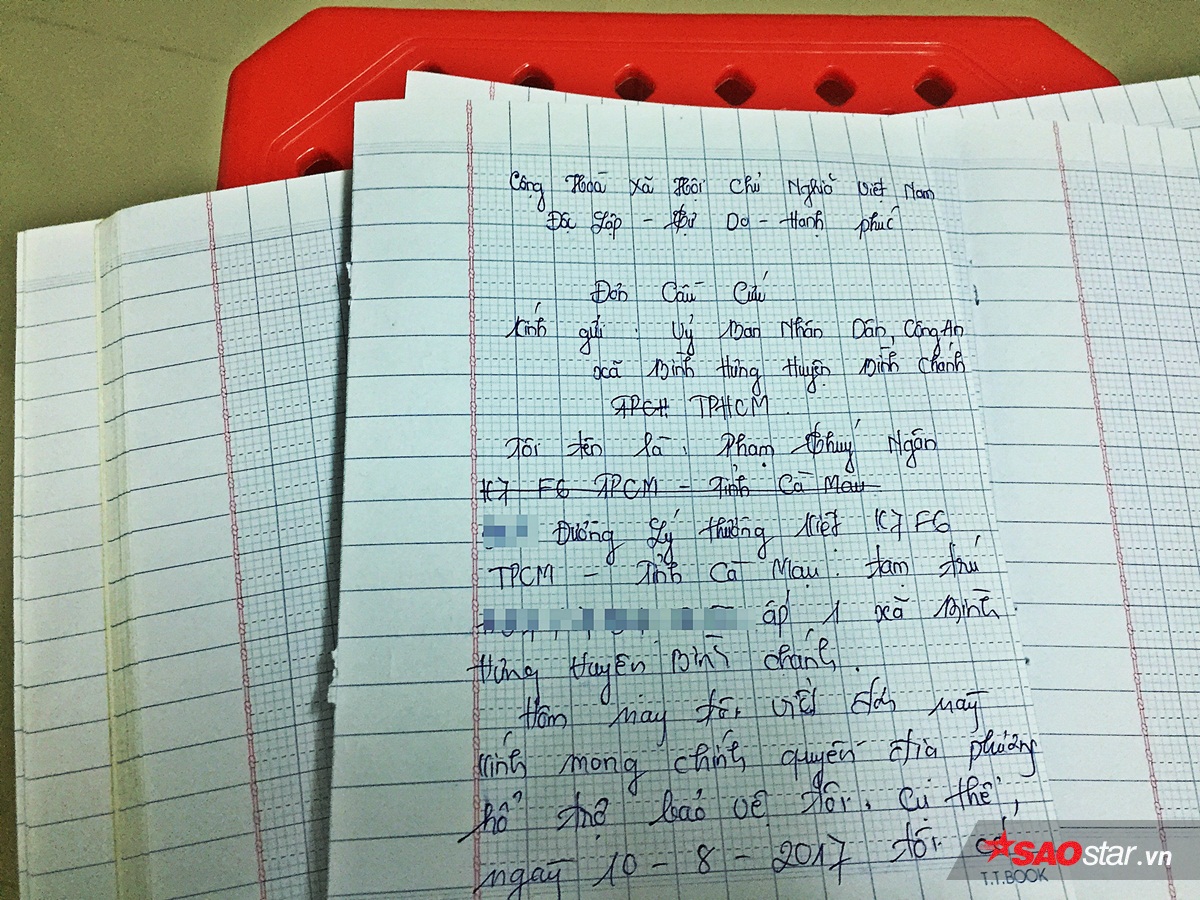 Cộng Hoà Xã Hội Chủ Nghiã Việt Nam
Độc Lập - Tự Do - Hạnh phúc.
Đơn Cầu Cứu
Kính gửi : Uỷ Ban Nhân Dân, Công An
xã Bình Hưng Huyện Bình Chánh
TPCH TPHCM.
Tôi tên là : Phạm Thuý Ngân
K7 F6 TPCM - Tỉnh Cà Mau
Đường Lý thường Kiệt K7 F6
TPCM - Tỉnh Cà Mau. tạm trú
ấp 1 xã Bình
Hưng Huyện Bình chánh.
Hôm nay tôi viết đơn này
kính mong chính quyền địa phương
hổ trợ bảo vệ tôi. Cụ thể,
ngày 10 - 8 - 2017 tôi có
SAOstar.vn
T.T.BOOK